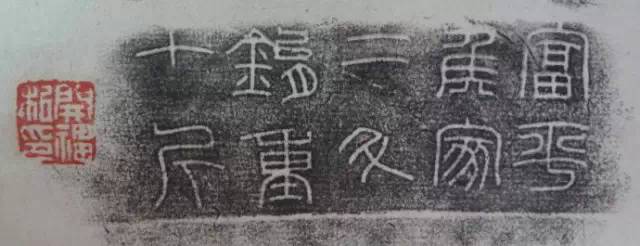 富平
侯家
二斗
鋗重
十斤